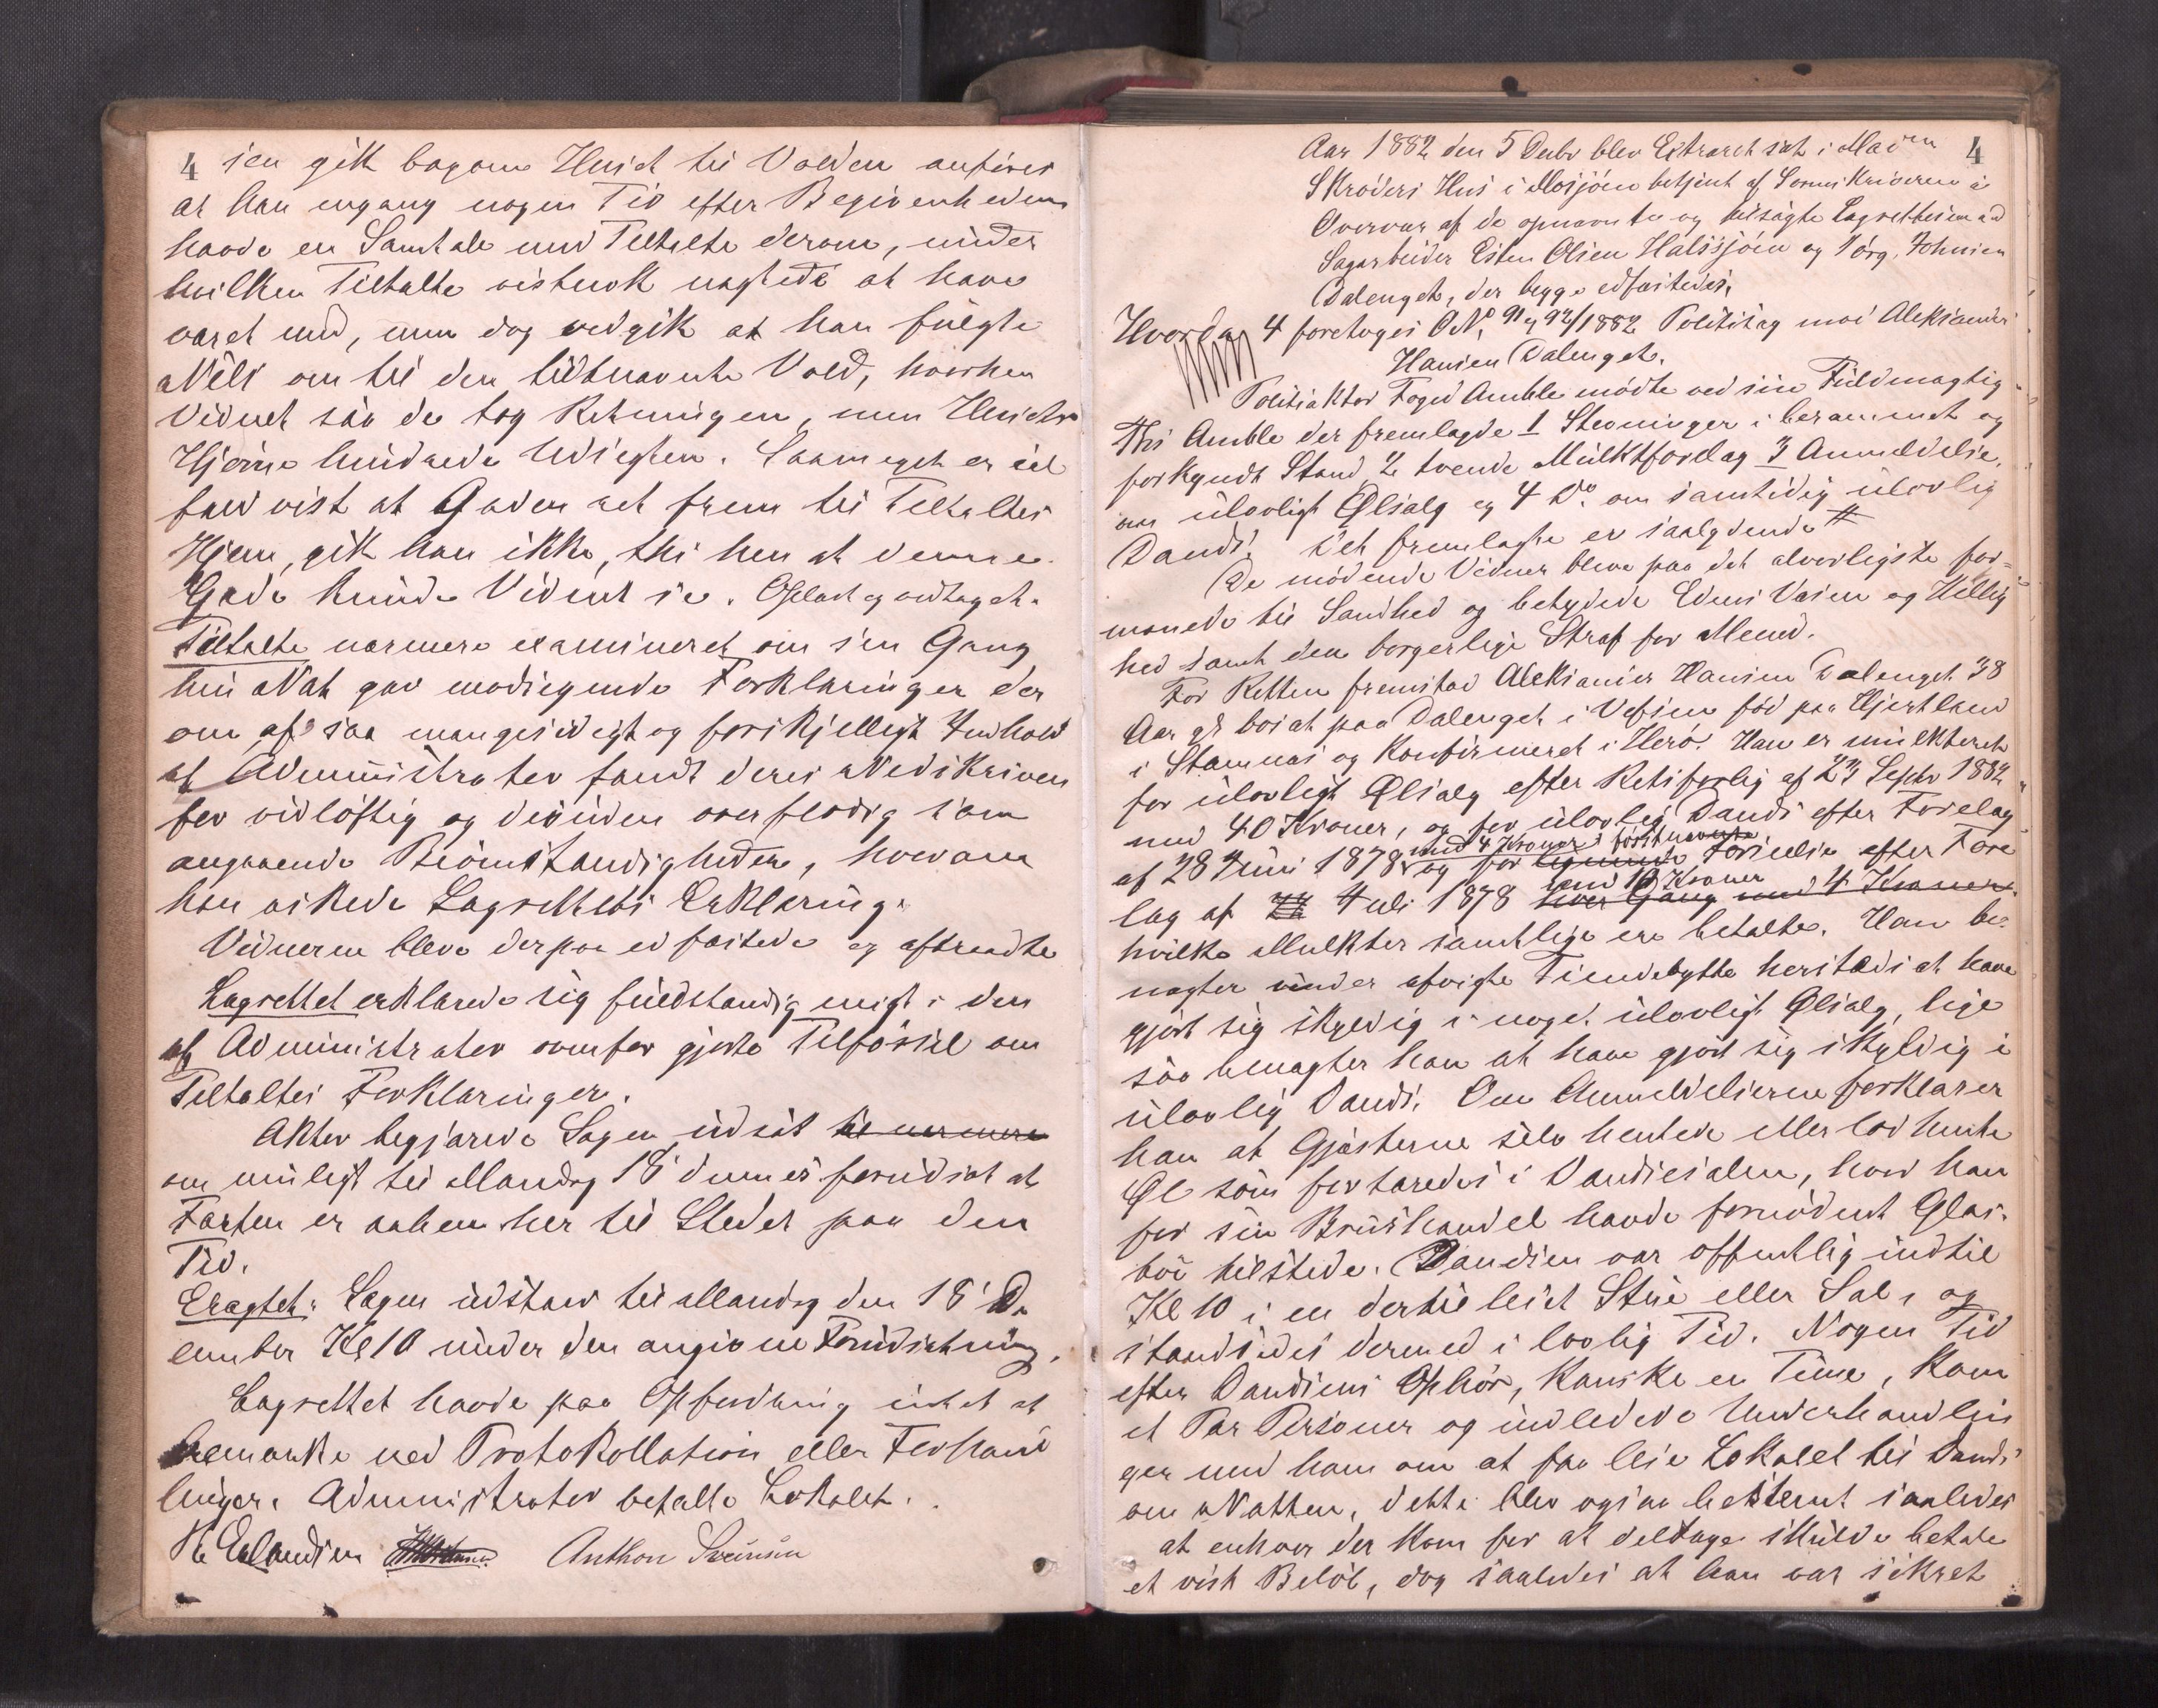 4 sen gik bagom Huset til Volden anføres
at han engang nogen Tid efter Begivenheden
havde en Samtale med Tiltalte derom, under
hvilken Tiltalte vistnok nægtede at have
været med, men dog vedgik at han fulgte
Nils om til den lidtnævnte Vold, hvorhen
Vidnet saa de tog Retningen, men Husets
Hjørne hindrede Udsigten. Saameget er ial
fald vist at Gaden ret frem til Tiltaltes
Hjem, gik han ikke, thi hen at denne
Gade kunde Vidnet se. Oplæst og vedtaget.
Tiltalte nærmere examineret om sin Gang
hin Nat gav modsigende Forklaringer der
om af saa mangesidigt og forskjelligt Indhold
at Administrator fandt deres Nedskriven
for vidløftig og desuden overflødig som
angaaende Biomstændigheder, hvorom
han æskede Lagrettets Erklæring.
Vidnerne bleve derpaa edfæstede og aftraadte
Lagrettet erklærede sig fuldstændig enigt i den
af Administrator ovenfor gjorte Tilførsel om
Tiltaltes Forklaringer.
Aktor begjærede Sagen udsat til nærmere
om muligt til Mandag 18 dennes forudsat at
Farten er aaben her til Stedet paa den
Tid.
Eragtet: Sagen udstaar til Mandag den 18 De
cember Kl 10 under den angivne Forudsætning.
Lagrettet havde paa Opfordring intet at
bemærke ved Protokollation eller Forhand
linger. Administrator betalte Lokalet.
Erlandsen Anthon Svendsen
Aar 1882 den 5 Decbr blev Extraret sat i Madm 4
Skrøders Hus i Mosjøen betjent af Sorenskriveren i
Overvær af de opnævnte og tilsagte Lagrettesmænd
Sagarbeider Esten Olsen Halssjøen og Jørg. Johnsen
Dalenget, der begge edfæstedes,
Hvorda 4 foretoges O No 91 og 92/1882 Politisag mod Aleksander
Hansen Dalenget.
Politiaktor Foged Amble mødte ved sin Fuldmægtig
Ths Amble der fremlagde 1 Stevninger i berammet og
forkyndt Stand, 2 tvende Mulktforelag 3 Anmeldelse
om ulovligt Ølsalg og 4 Do om samtidig ulovlig
Dands. Det fremlagte er saalydende #
De mødende Vidner bleve paa det alvorligste for=
manede til Sandhed og betydede Edens Væsen og Hellig
hed samt den borgerlige Straf for Mened.
For Retten fremstod Aleksander Hansen Dalenget 38
Aar gl bosat paa Dalenget i Vefsen fød paa Hjertland
i Stamnæs og Konfirmeret i Herø. Han er mulkteret
for ulovligt Ølsalg efter Retsforlig af 23 Septbr 1882
med 40 Kroner, og for ulovlig Dands efter Forelag
med 4 Kroner i førstnævnte
af 28 Juni 1878 og for lignende Forseelse efter Fore
med 10 Kroner
lag af 22 Juli 1878 hver Gang med 4 Kroner
hvilke Mulkter samtlige ere betalte. Han be=
nægter under afvigte Tiendebytte herstæds at have
gjort sig skyldig i noget ulovligt Ølsalg, lige
saa benægter han at have gjort sig skyldig i
ulovlig Dands. Om Anmeldelserne forklarer
han at Gjæsterne selv hentede eller lod hente
Øl som fortæredes i Dandsesalen, hvor han
for sin Brushandel havde fornødent Glas=
tøi tilstede. Dandsen var offentlig indtil
Kl 10 i en dertil leiet Stue eller Sal, og
standsedes dermed i lovlig Tid. Nogen Tid
efter Dandsens Ophør, kanske en Time, kom
et Par Personer og indledede Underhandlin
ger med ham om at faa leie Lokalet til Dands
om Natten, dette blev ogsaa bestemt saaledes
at enhver der kom for at deltage skulde betale
et vist Beløb, dog saaledes at han var sikret